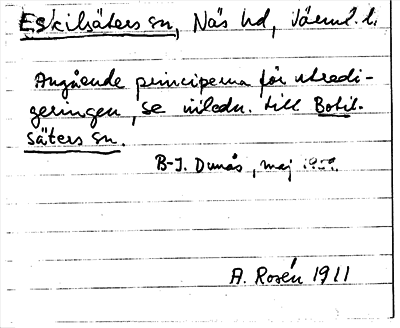 Eskilsäters sn, Näs hd, Värml. l.
Angående principerna för utredi-
geringen, se inledn. till Botil-
säters sn.
B-I. Dunås, maj
A. Rosén 1911